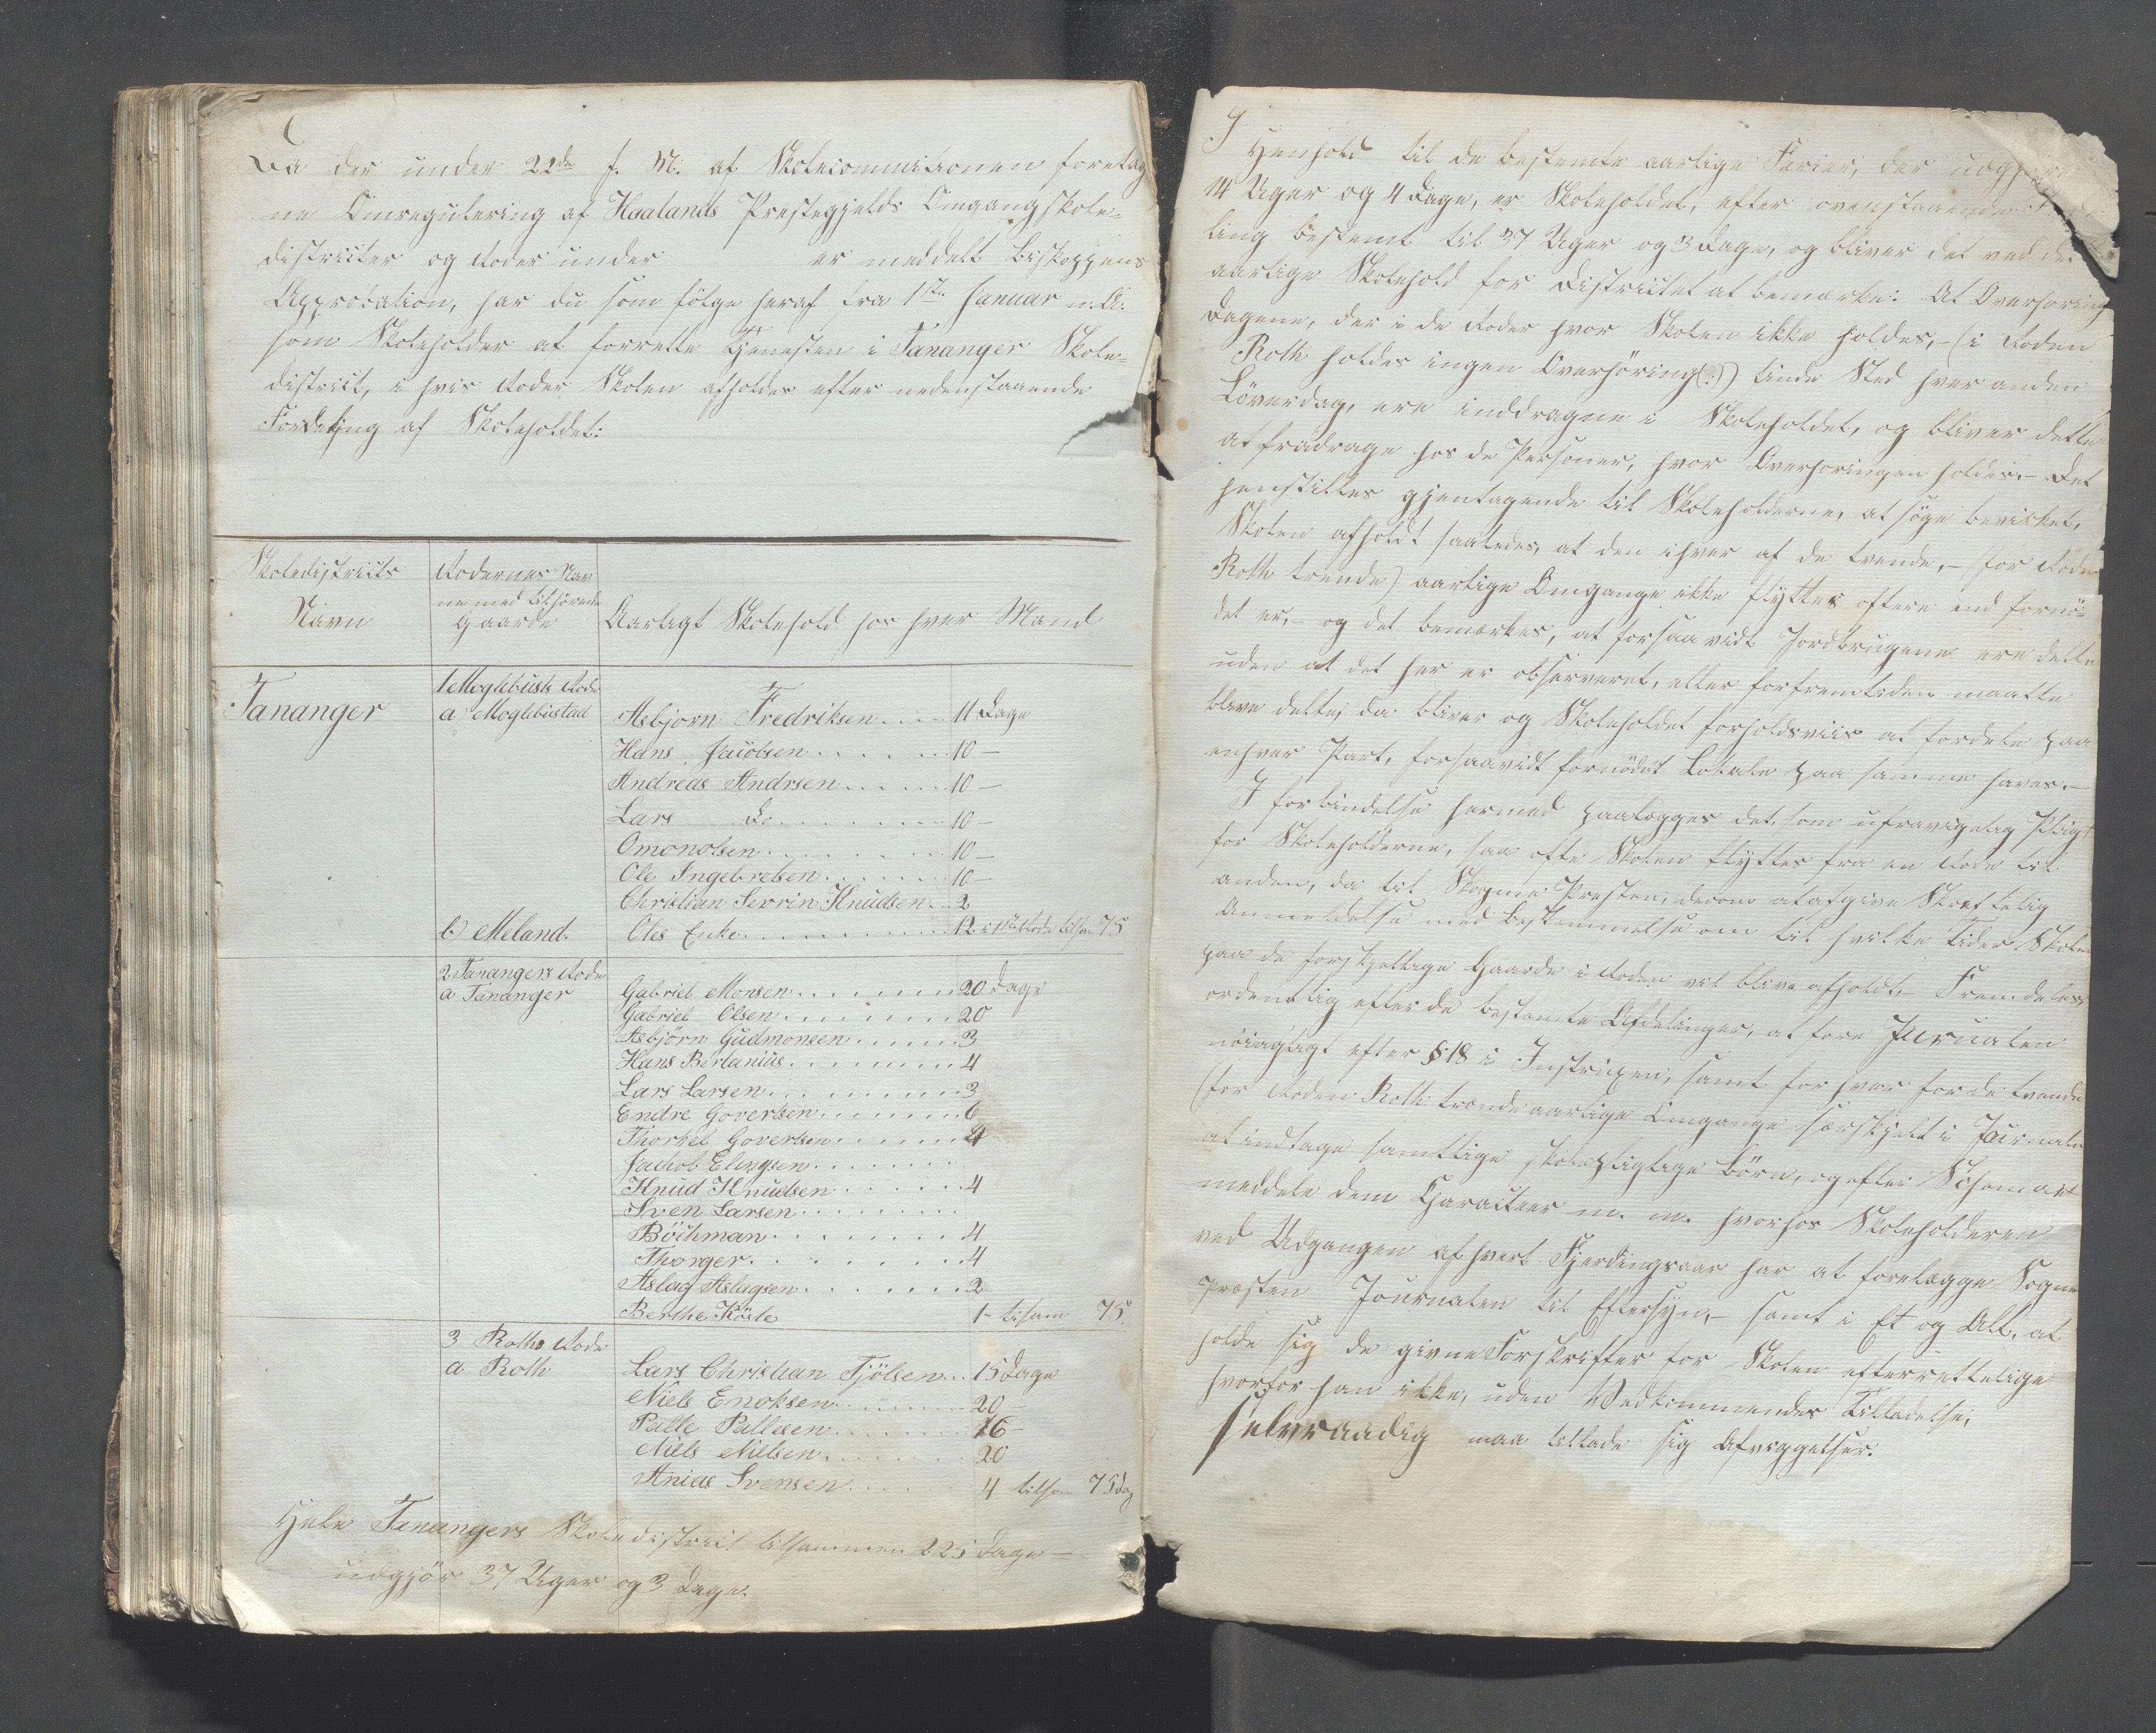 Da der under 22de f. M. af Skolecommitionen foretag
ne Omregulering af Haalands Prestegjelds Omgangsskole-
districter og Roder under er meddelt Biskoppens
Approbation, har du som fölge heraf fra 1ste Januar n. A.
som Skoleholder at forrette Tjenesten i Tananger Skole-
district, i hvis Roder Skolen afholdes efter nedenstaaende
Fordeling af Skoleholdet:
Skoledistricts Navn
Rodernes Nav
ne med tilhörende
Gaarde
Aarligt Skolehold hos hver Mand
Tananger
1 Moglebust Rode
a Moglebustad Asbjorn Fredriksen 11 Dage
Hans Jacobsen 10 –
Andreas Andrsen 10 –
Lars Do 10 –
Omonolsen 10 –
Ole Ingebretsen 10 –
Christian Serrin Knudsen 2
b) Meland. Oles Enke 12 i 1ste Rode tilsam 75
2 Tanangers Rode
a Tananger Gabriel Monsen 20 Dage
Gabriel Olsen 20
Asbjörn Gudmonsen 3
Hans Bertanius 4
Lars Larsen 3
Endre Govertsen 6
Thorkel Govertsen 4
Jachob Elingsen
Knud Knudsen 4
Sven Larsen
Böckman 4
Thorger 4
Aslag Aslagsen 2
Berthe Köste 1 – tilsam 75.
3 Roths Rode
a Roth Lars Christian Tjölsen 15 Dage
Niels Enoksen 20 –
Palle Pallesen 16 –
Niels Nielsen 20
Anias Svensen 4 tilsam 75 Dag
Hele Tanangers Skoledistrict tilsammen 225 Dage –
udgjör 37 Uger og 3 Dage.
I Henhold til de bestemte aarlige Ferier, der udgjöre
14 Uger og 4 Dage, er Skoleholdet, efter ovenstaaende
ling bestemt til 37 Uger og 3 Dage, og bliver det ved det
aarlige Skolehold for Districtet at bemærke: At Overhöring
Dagene, der i de Roder hvor Skolen ikke holdes, – (i Roden
Roth holdes ingen Overhöring) finde Sted hver anden
Löverdag, ere inddragne i Skoleholdet, og bliver dette
at fradrage hos de Personer, hvor Overhöringen holdes. – Det
henstilles gjentagende til Skoleholderne, at söge bevirket,
Skolen afholdt saaledes, at den ihver af de tvende, – (for Roden
Roth trende) aarlige Omgange ikke flyttes oftere end fornö-
det er, – og det bemærkes, at forsaavidt Jordbrugene ere delte
uden at det her er observeret, eller for fremtiden maatte
blive delte, da bliver og Skoleholdet forholdsviis at fordele paa
enhver Part, forsaavidt fornödent Lokale paa samme haves. –
I forbindelse hermed paalægges det, som ufravigelig Pligt
for Skoleholderne, saa ofte Skolen flyttes fra en Rode til
anden, da til Sogne Presten, derom at afgive Skreftelig
Anmeldelse med bestemmelse om til hvilke Tider Skolen
paa de forskjellige Gaarde i Roden vil blive afholdt, – Fremdeles
ordentlig efter de bestemte Afdelinger, at före Jurnalen
nöiagtigt efter § 18 i Instruxen, samt for hver for de tvende
(for Roden Roth trende aarlige Omgange særskjelt i Journalen
at indtage samtlige skolepligtige Börn, og efter Schemaet
meddele dem Characteer m. m. hvorhos Skoleholderen
ved Udgangen af hvert Fjerdingaar har at forelægge Sogne
Præsten Journalen til Eftersyn, – samt i Et og Alt, at
holde sig de givne Forskrifter for Skolen efterrettelige
hvorfor han ikke, uden Vedkommendes Tilladelse,
selvraadig maa tillade sig Afvigelser.